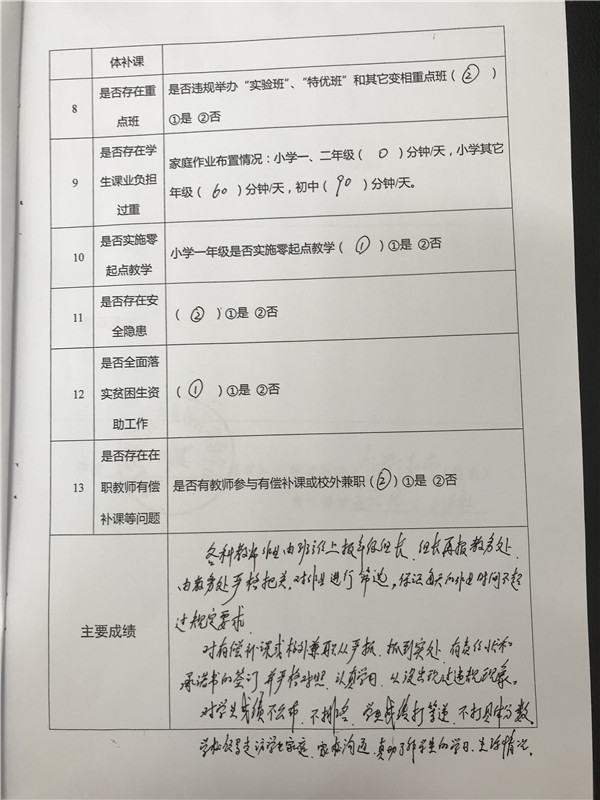 体补课
8 是否存在重 是否违规举办“实验班”、“特优班”和其它变相重点班( ② )
点班 ①是 ②否
9 是否存在学 家庭作业布置情况:小学一、二年级( 0 )分钟/天,小学其它
生课业负担 年级( 60 )分钟/天,初中( 90 )分钟/天。
过重
10 是否实施零 小学一年级是否实施零起点教学( ① )①是 ②否
起点教学
11 是否存在安 ( ② )①是 ②否
全隐患
12 是否全面落 ( ① )①是 ②否
实贫困生资
助工作
13 是否存在在 是否有教师参与有偿补课或校外兼职(②)①是 ②否
职教师有偿
补课等问题
主要成绩
各科教师作业由班主任上报年级组长、组长再报教务处
由教务处严格把关,对作业进行筛选,保证每天的作业时间不超
过规定要求。
对有偿补课或校外兼职从严抓、抓到实处、有责任状和
承诺书的签订并严格对照、认真学习、从没出现过违规现象。
对学生成绩不公布、不排名、学生成绩打等递、不打具体分数
学校领导走访学生家庭、家校沟通、真切了解学生的学习、生活情况。